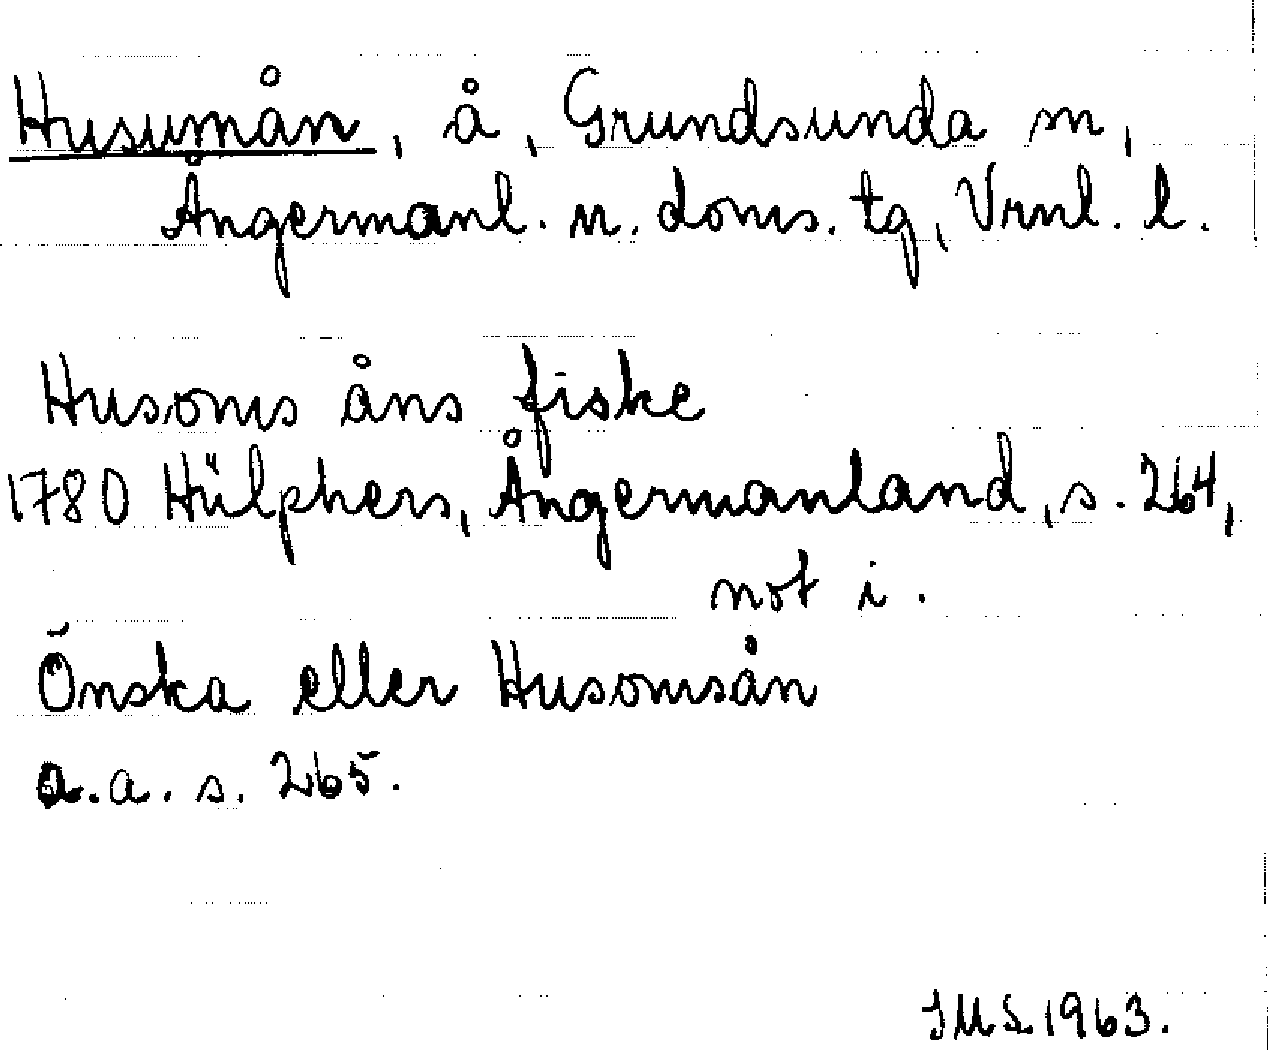 Husumån, å, Grundsunda sn,
Ångermanl. n. doms. tg, Vrnl. l.
Husoms åns fiske
1780 Hülphers, Ångermanland, s. 264,
not i.
Önska eller Husomsån
a.a. s. 265.
IMS 1963.